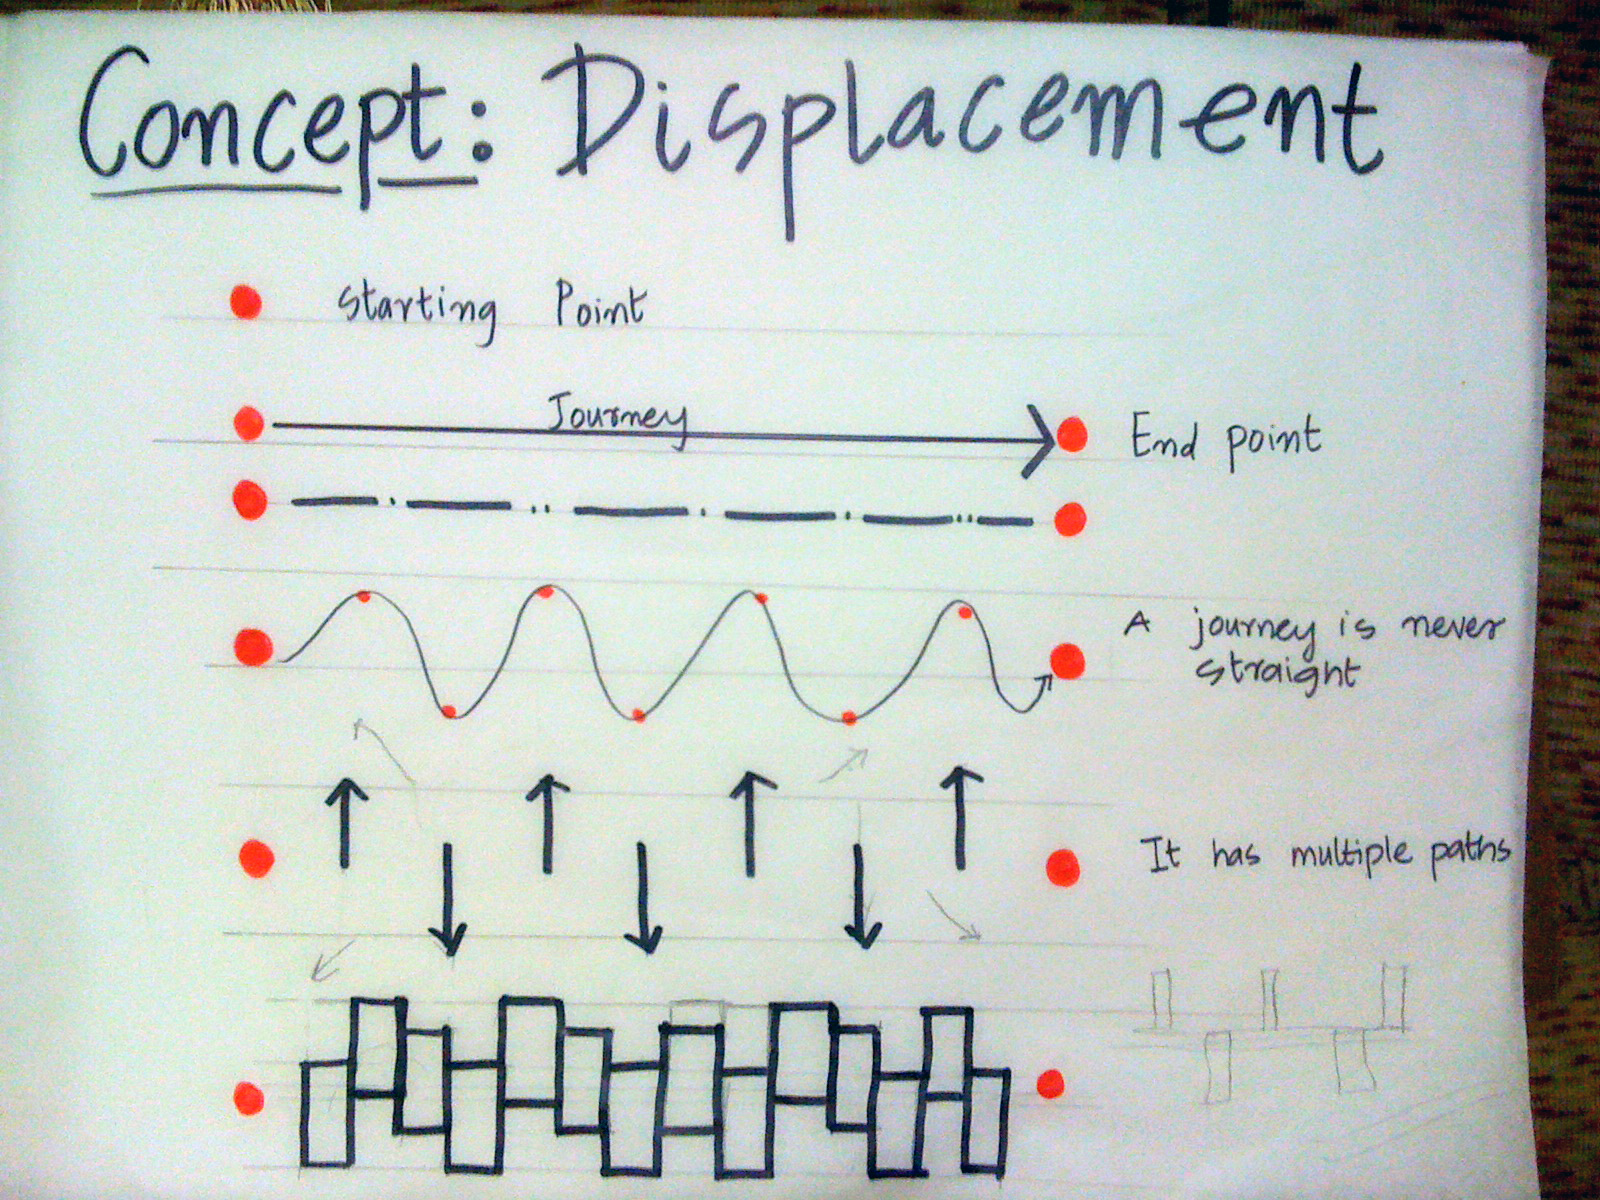 Concept: Displacement
Starting Point
Journey
End point
A journey is never
straight
It has multiple paths